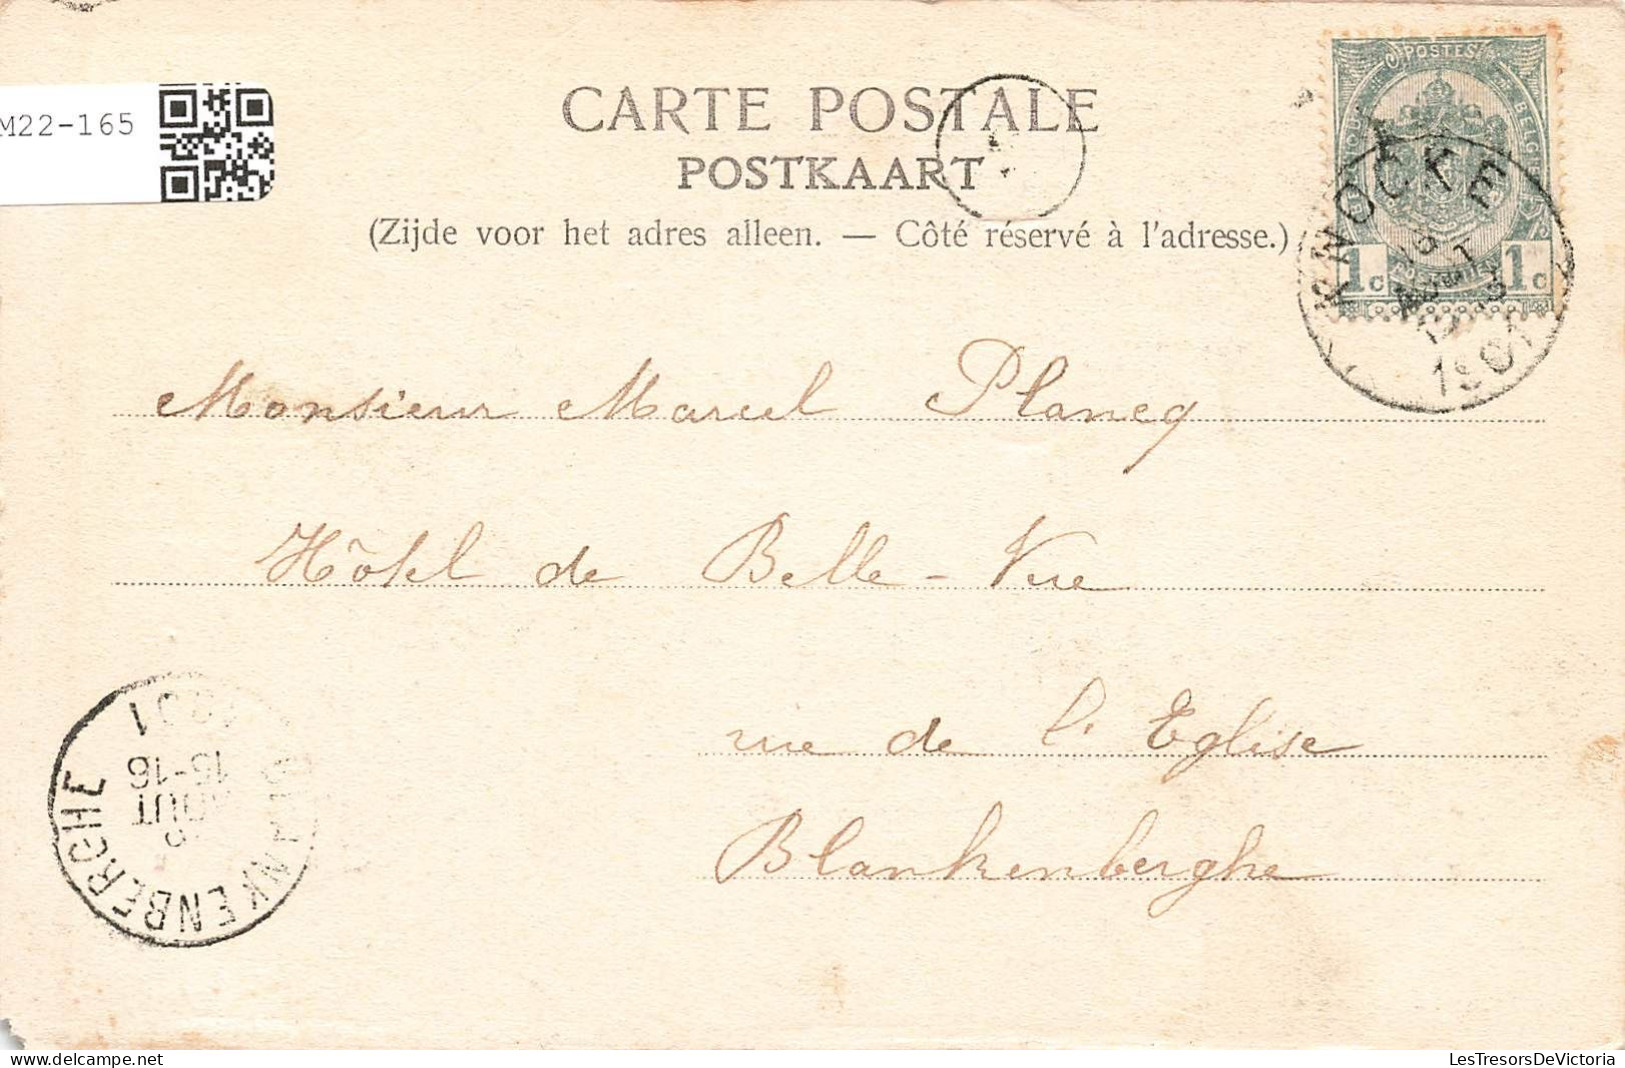 CARTE POSTALE
POSTKAART
(Zijde voor het adres alleen. — Côté réservé à l'adresse.)
M22-165
POSTES
1c 1c
KNOCKE
1901
Monsieur Marcel Plancq
Hôtel de Belle-Vue
rue de l'Eglise
Blankenberghe
BLANKENBERGHE
AOUT
15-16
1901
LesTresorsDeVictoria